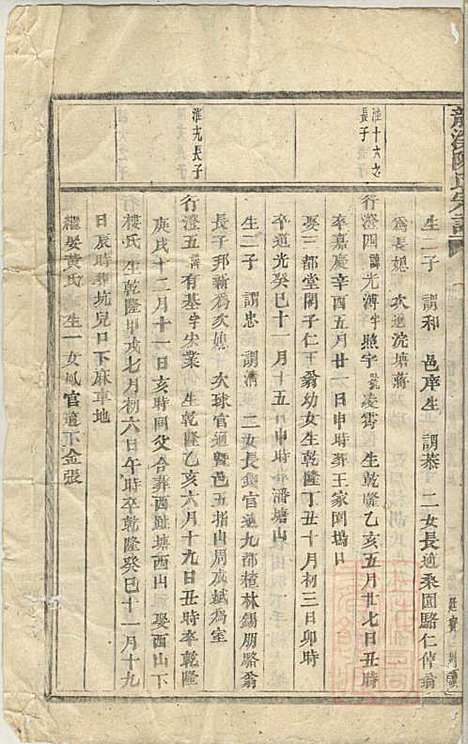 龍溪陳氏宗譜
生二子 謂和 邑庠生 謂恭 二女長適桑園駱仁倬翁
為長媳 次適浣塘蔣
淮十六之長子
行澄四諱光溥字照宇號凌霄 生乾隆乙亥五月廿七日丑時
卒嘉慶辛酉五月廿一日申時葬王家園塢口
娶三都堂閣子仁王翁幼女生乾隆丁丑十月初三日卯時
卒道光癸巳十一月十五日申時葬潘塘山
生二子 謂忠 謂清 二女長銀官適九都檀林錫朋駱翁
長子邦新為次媳 次球官適暨邑五指山周成斌為室
淮九長子
行澄五諱有基字宏業 生乾隆乙亥六月十九日丑時卒乾隆
庚戌十二月十一日亥時同父合葬西跳塘西山 娶西山下
樓氏 生乾隆甲戌七月初六日午時卒乾隆癸巳十一月十九
日辰時葬坑兒口下麻車地
繼娶黃氏 生一女鳳官適下金張